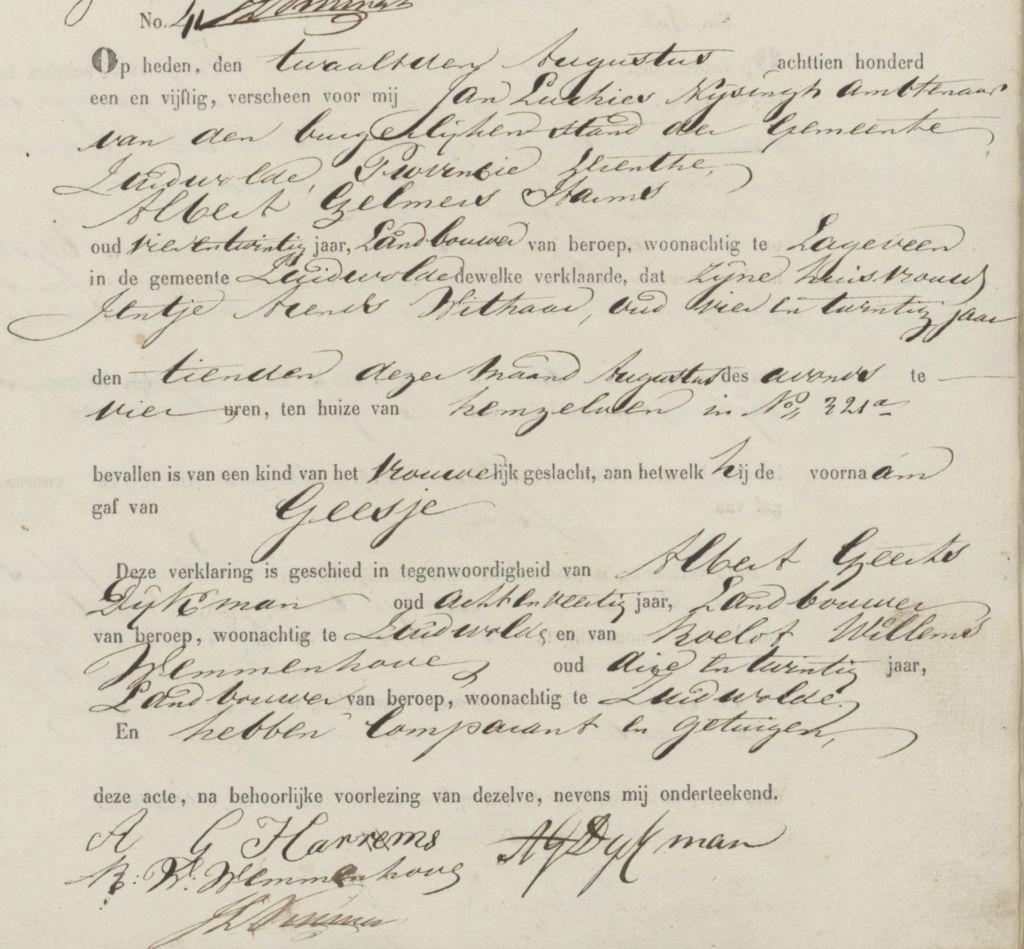 No. 41
Op heden, den twaalfden Augustus achttien honderd
een en vijftig, verscheen voor mij Jan Luchies Nysingh ambtenaar
van den burgerlijken stand der Gemeente
Zuidwolde, Provincie Drenthe,
Albert Gelmers Harms
oud vierentwintig jaar, Landbouwer van beroep, woonachtig te Lageveen
in de gemeente Zuidwolde dewelke verklaarde, dat zijne huisvrouw
Jentje Arends Withaar, oud vier en twintig jaar
den tienden dezer maand Augustus des avonds te
vier uren, ten huize van hemzelven in No 321a
bevallen is van een kind van het vrouwelijk geslacht, aan hetwelk hij de voornaam
gaf van Geesje
Deze verklaring is geschied in tegenwoordigheid van Albert Geerts
Dijkman oud achtenveertig jaar, Landbouwer
van beroep, woonachtig te Zuidwolde en van Roelof Willems
Wemmenhove oud drie en twintig jaar,
Landbouwer van beroep, woonachtig te Zuidwolde.
En hebben Comparant en getuigen,
deze acte, na behoorlijke voorlezing van dezelve, nevens mij onderteekend.
A G Harrems AGDijkman
R: W: Wemmenhove